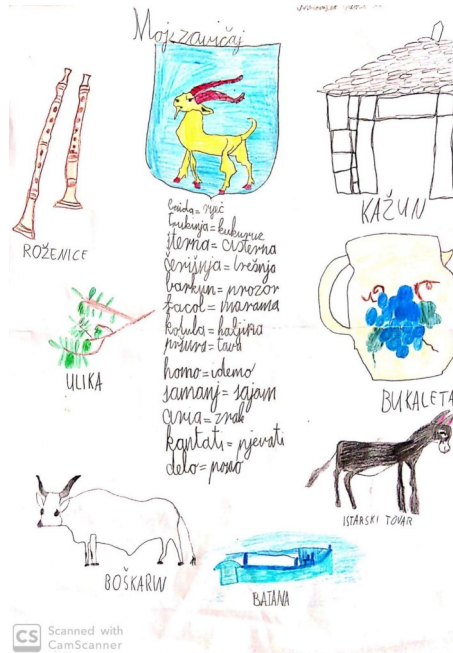 Moj zavičaj
ROŽENICE
KAŽUN
= riječ
= kukuruz
šterna = cisterna
čerišnja = trešnja
barkun = prozor
facol = marama
= haljina
= tava
homo = idemo
samanj = sajam
aria = zrak
kantati = pjevati
delo = posao
ULIKA
BUKALETA
ISTARSKI TOVAR
BOŠKARIN
BATANA
CS Scanned with
CamScanner